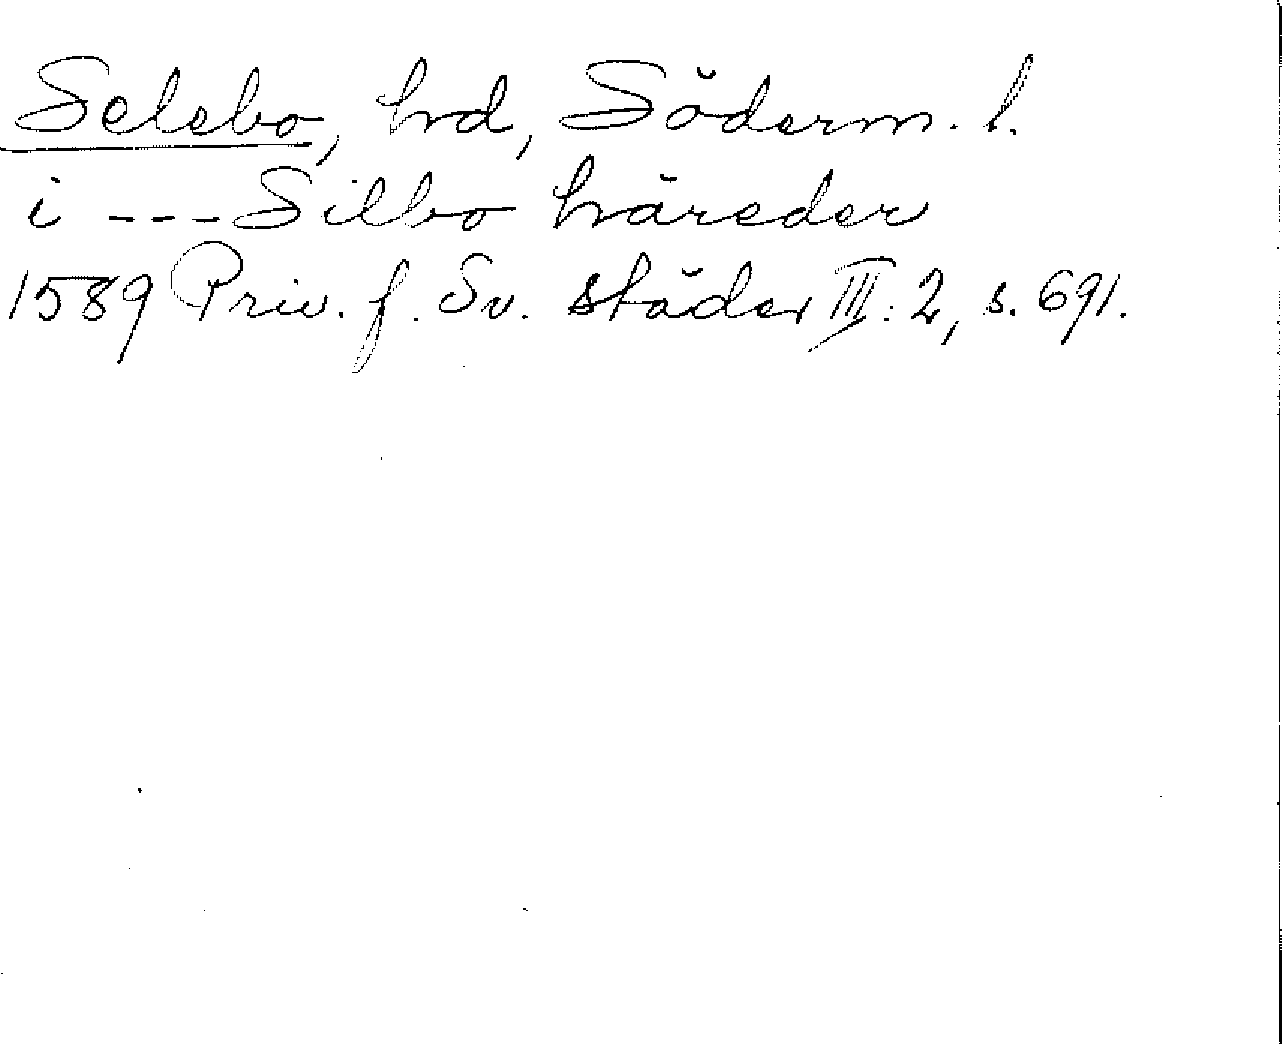 Selebo, hrd, Söderm. l.
i --- Silbo häreder
1589 Priv. f. Sv. städer III: 2, s. 691.